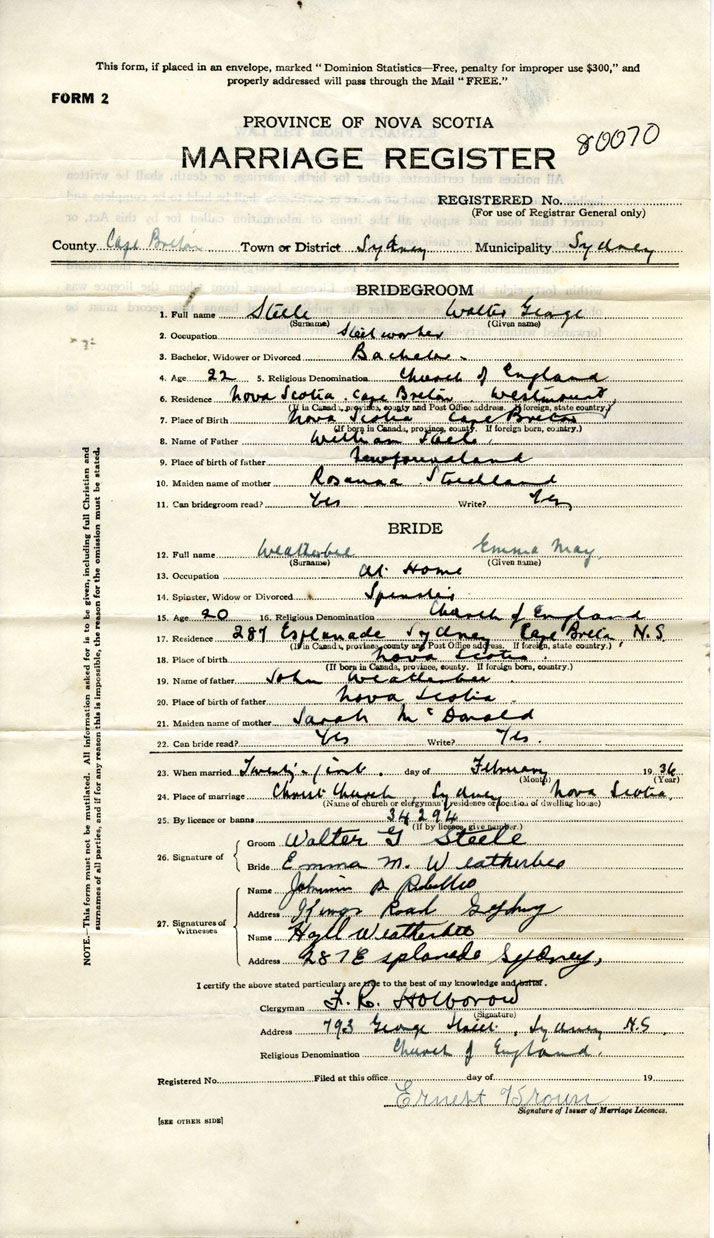 This form, if placed in an envelope, marked "Dominion Statistics—Free, penalty for improper use $300," and
properly addressed will pass through the Mail "FREE."
FORM 2
PROVINCE OF NOVA SCOTIA
80070
MARRIAGE REGISTER
REGISTERED No.
(For use of Registrar General only)
County Cape Breton Town or District Sydney Municipality Sydney
BRIDEGROOM
1. Full name Steele Walter George
(Surname) (Given name)
2. Occupation Steelworker
3. Bachelor, Widower or Divorced Bachelor.
4. Age 22 5. Religious Denomination Church of England
6. Residence Nova Scotia. Cape Breton Westmount,
(If in Canada, province, county and Post Office address. If foreign, state country.)
7. Place of Birth Nova Scotia Cape Breton
(If born in Canada, province, county. If foreign born, country.)
8. Name of Father William Steele
9. Place of birth of father Newfoundland
10. Maiden name of mother Rosanna
11. Can bridegroom read? Yes Write? Yes
BRIDE
12. Full name Weatherbee Emma May
(Surname) (Given name)
13. Occupation At Home
14. Spinster, Widow or Divorced Spinster
15. Age 20 16. Religious Denomination Church of England
17. Residence 287 Esplanade Sydney Cape Breton, N.S
(If in Canada, province, county and Post Office address. If foreign, state country.)
18. Place of birth Nova Scotia.
(If born in Canada, province, county. If foreign born, country.)
19. Name of father John Weatherbee
20. Place of birth of father Nova Scotia.
21. Maiden name of mother Sarah McDonald
22. Can bride read? Yes Write? Yes.
23. When married Twenty-first. day of February 1936
(Month) (Year)
24. Place of marriage Christ Church, Sydney Nova Scotia
(Name of church or clergyman's residence or location of dwelling house)
25. By licence or banns 34294
(If by licence, give number.)
26. Signature of Groom Walter G Steele
Bride Emma M. Weatherbee
27. Signatures of Witnesses
Name
Address Kings Road Sydney
Name Weatherbee
Address 287 Esplanade Sydney,
I certify the above stated particulars are true to the best of my knowledge and belief.
Clergyman F. C. Holborow
(Signature)
Address 793 George Street, Sydney N.S.
Religious Denomination Church of England.
Registered No. Filed at this office day of 19
Ernest Brown
Signature of Issuer of Marriage Licences.
[SEE OTHER SIDE]
NOTE.—This form must not be mutilated. All information asked for is to be given, including full Christian and
surnames of all parties, and if for any reason this is impossible, the reason for the omission must be stated.